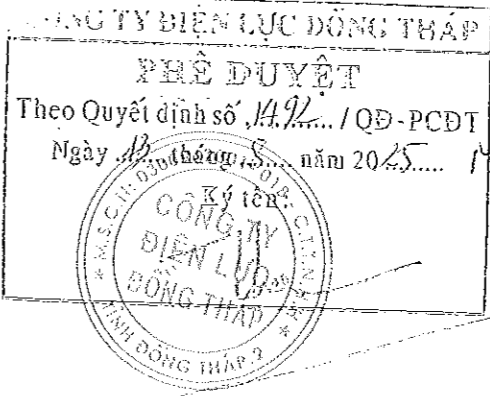 CÔNG TY ĐIỆN LỰC ĐỒNG THÁP
PHÊ DUYỆT
Theo Quyết định số 1492 / QĐ-PCĐT
Ngày 13 tháng 8 năm 2025
Ký tên:
CÔNG TY
ĐIỆN LỰC
ĐỒNG THÁP
TỈNH ĐỒNG THÁP
M.S.C.N: 030